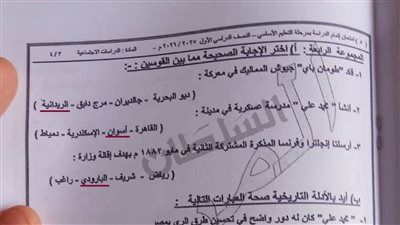 ( ٥ ) امتحان إتمام الدراسة بمرحلة التعليم الأساسي - النصف الدراسي الأول ٢٠٢٥ / ٢٠٢٦ م - المادة : الدراسات الاجتماعية ٤/٣
المجموعة الرابعة : أ) اختر الإجابة الصحيحة مما بين القوسين :-
١- قاد "طومان باي" جيوش المماليك في معركة :
( ديو البحرية - جالديران - مرج دابق - الريدانية )
٢- أنشأ "محمد علي" مدرسة عسكرية في مدينة :
( القاهرة - أسوان - الإسكندرية - دمياط )
٣- أرسلتا إنجلترا وفرنسا المذكرة المشتركة الثانية في مايو ١٨٨٢ م بهدف إقالة وزارة :
( رياض - شريف - البارودي - راغب )
ب) أيد بالأدلة التاريخية صحة العبارات التالية :
١- "محمد علي" كان له دور واضح في تحسين طرق الري بمصر
السلطان